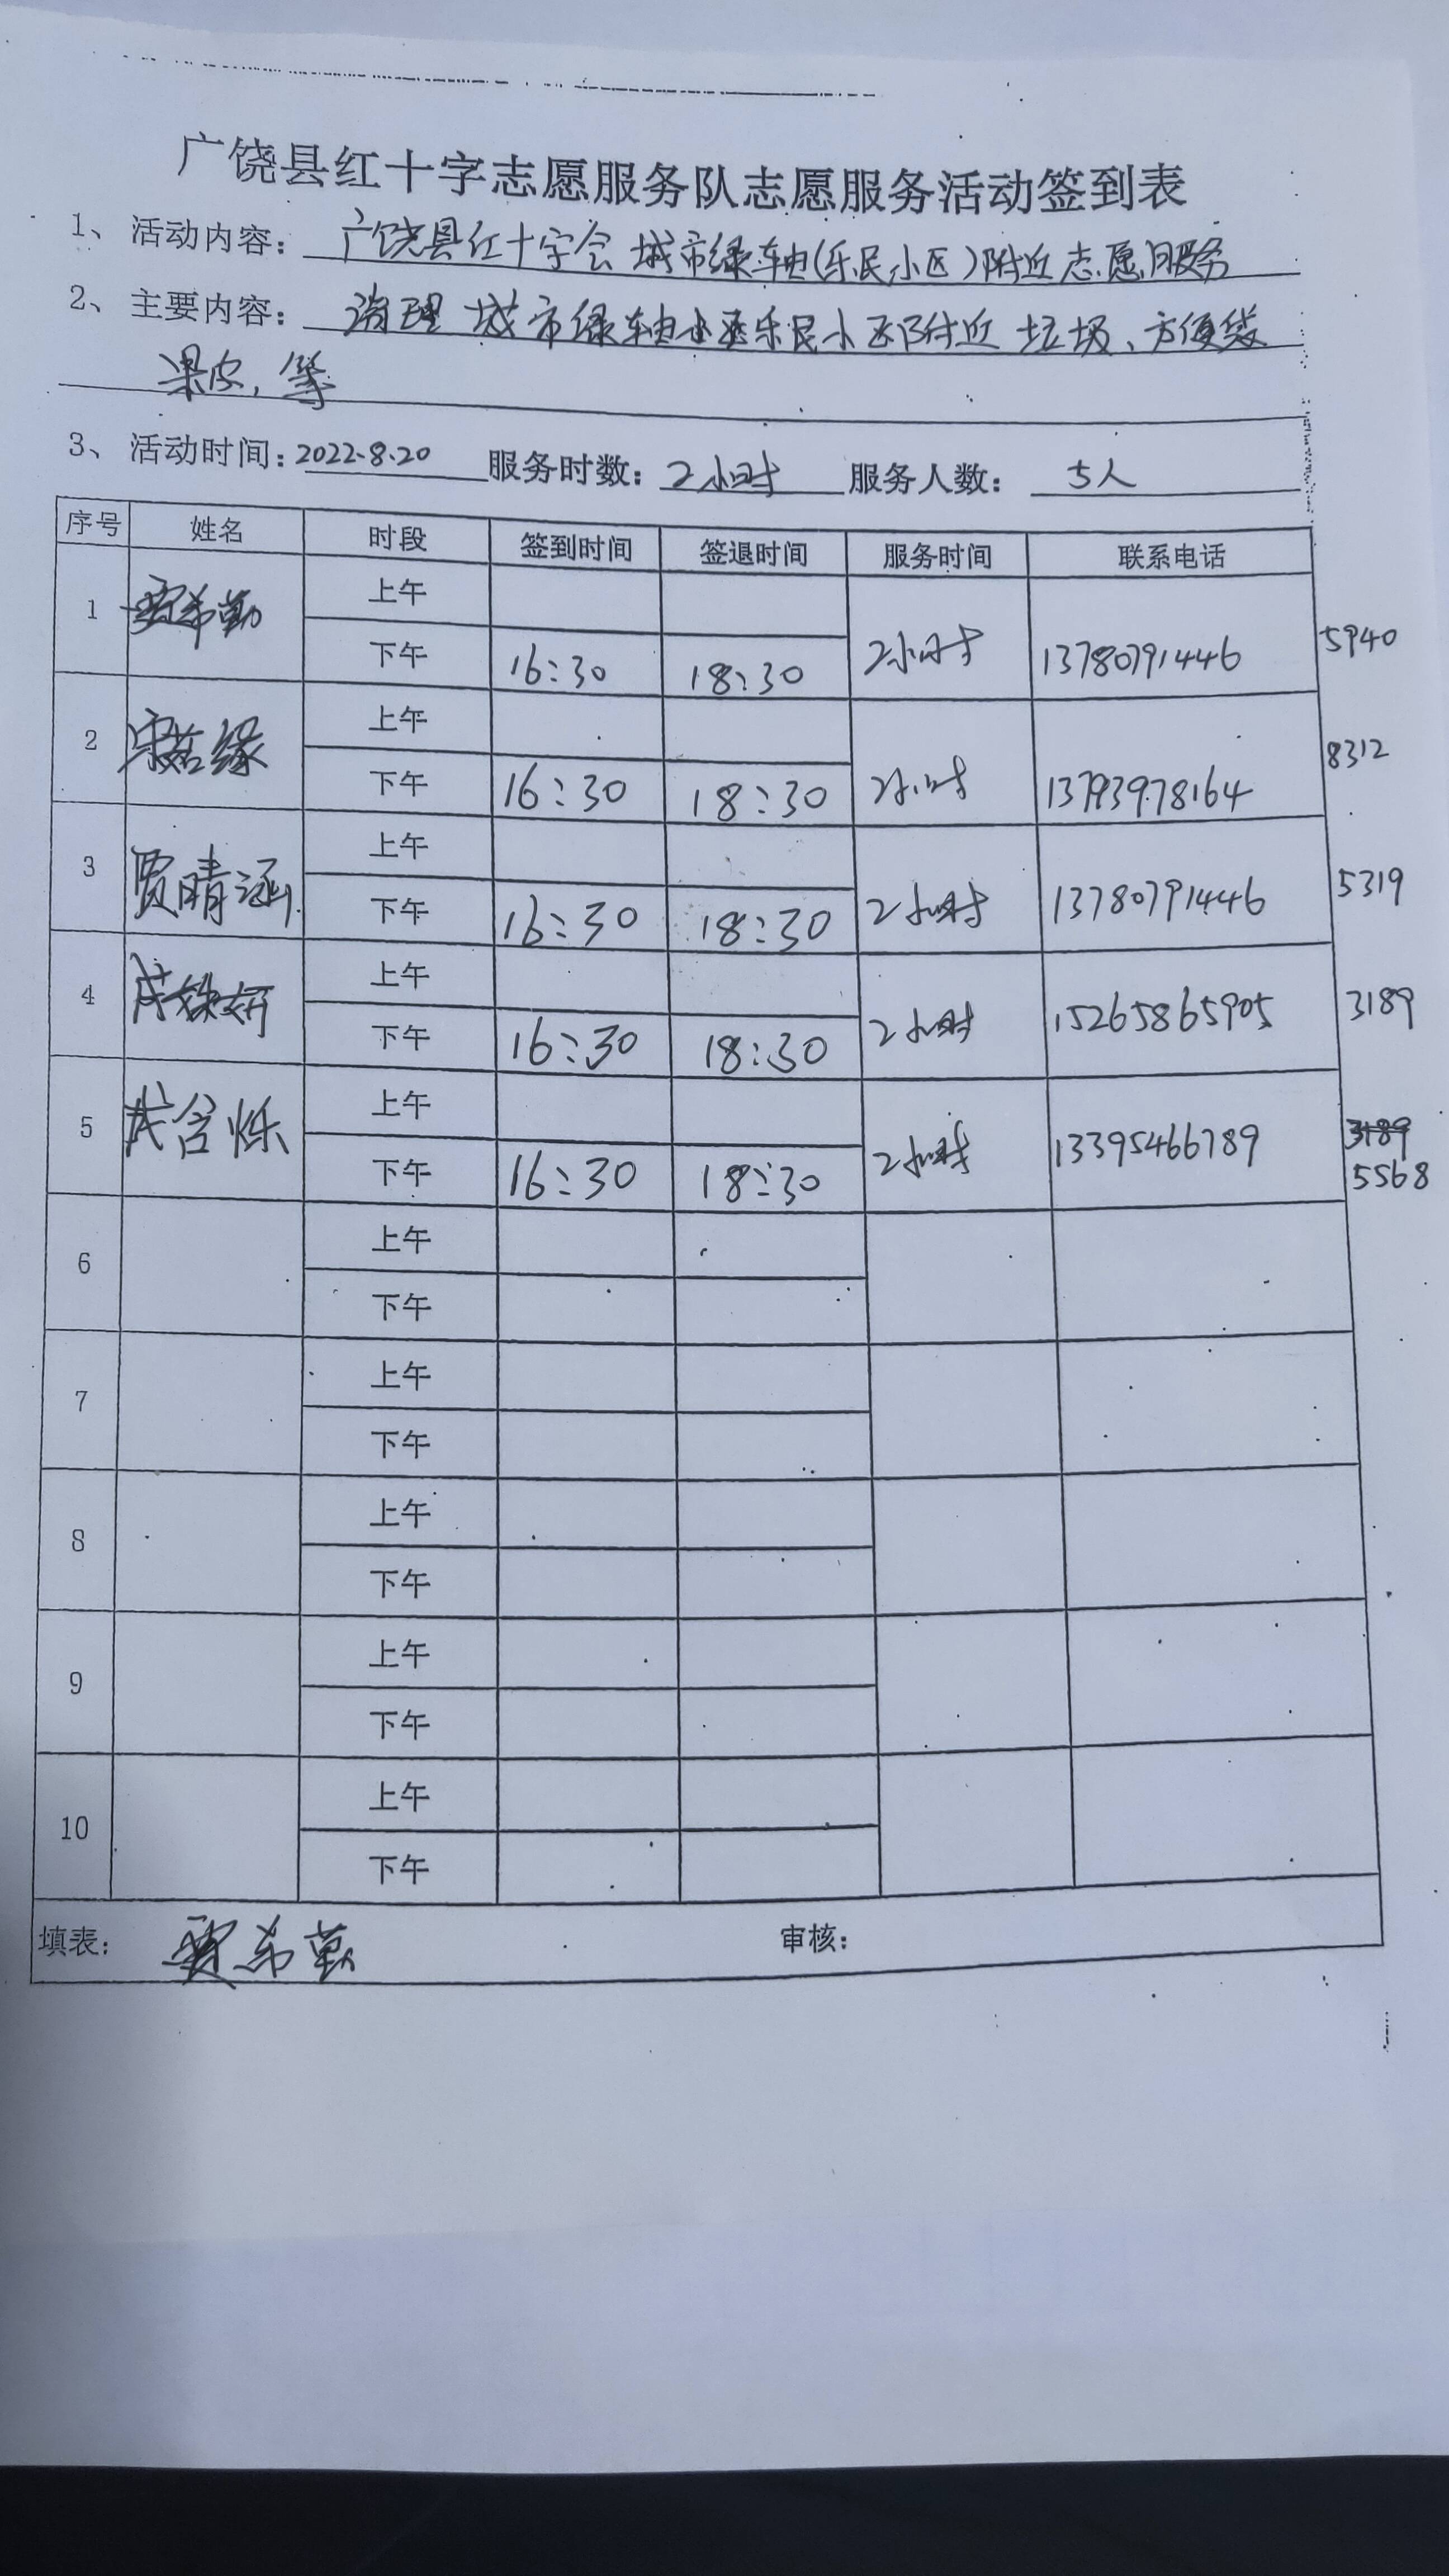 广饶县红十字志愿服务队志愿服务活动签到表
1、活动内容：广饶县红十字会 城市绿轴(乐民小区)附近志愿服务
2、主要内容：清理 城市绿轴 乐民小区附近 垃圾、方便袋
果皮，等
3、活动时间：2022.8.20 服务时数：2小时 服务人数：5人
序号 姓名 时段 签到时间 签退时间 服务时间 联系电话
1 贾希勤 上午
下午 16:30 18:30 2小时 13780791446 5940
2 宋若缘 上午
下午 16:30 18:30 2小时 13793978164 8312
3 贾晴涵 上午
下午 16:30 18:30 2小时 13780791446 5319
4 上午
下午 16:30 18:30 2小时 15265865905 3189
5 成含烁 上午
下午 16:30 18:30 2小时 13395466789 3189
5568
6 上午
下午
7 上午
下午
8 上午
下午
9 上午
下午
10 上午
下午
填表：贾希勤 审核：